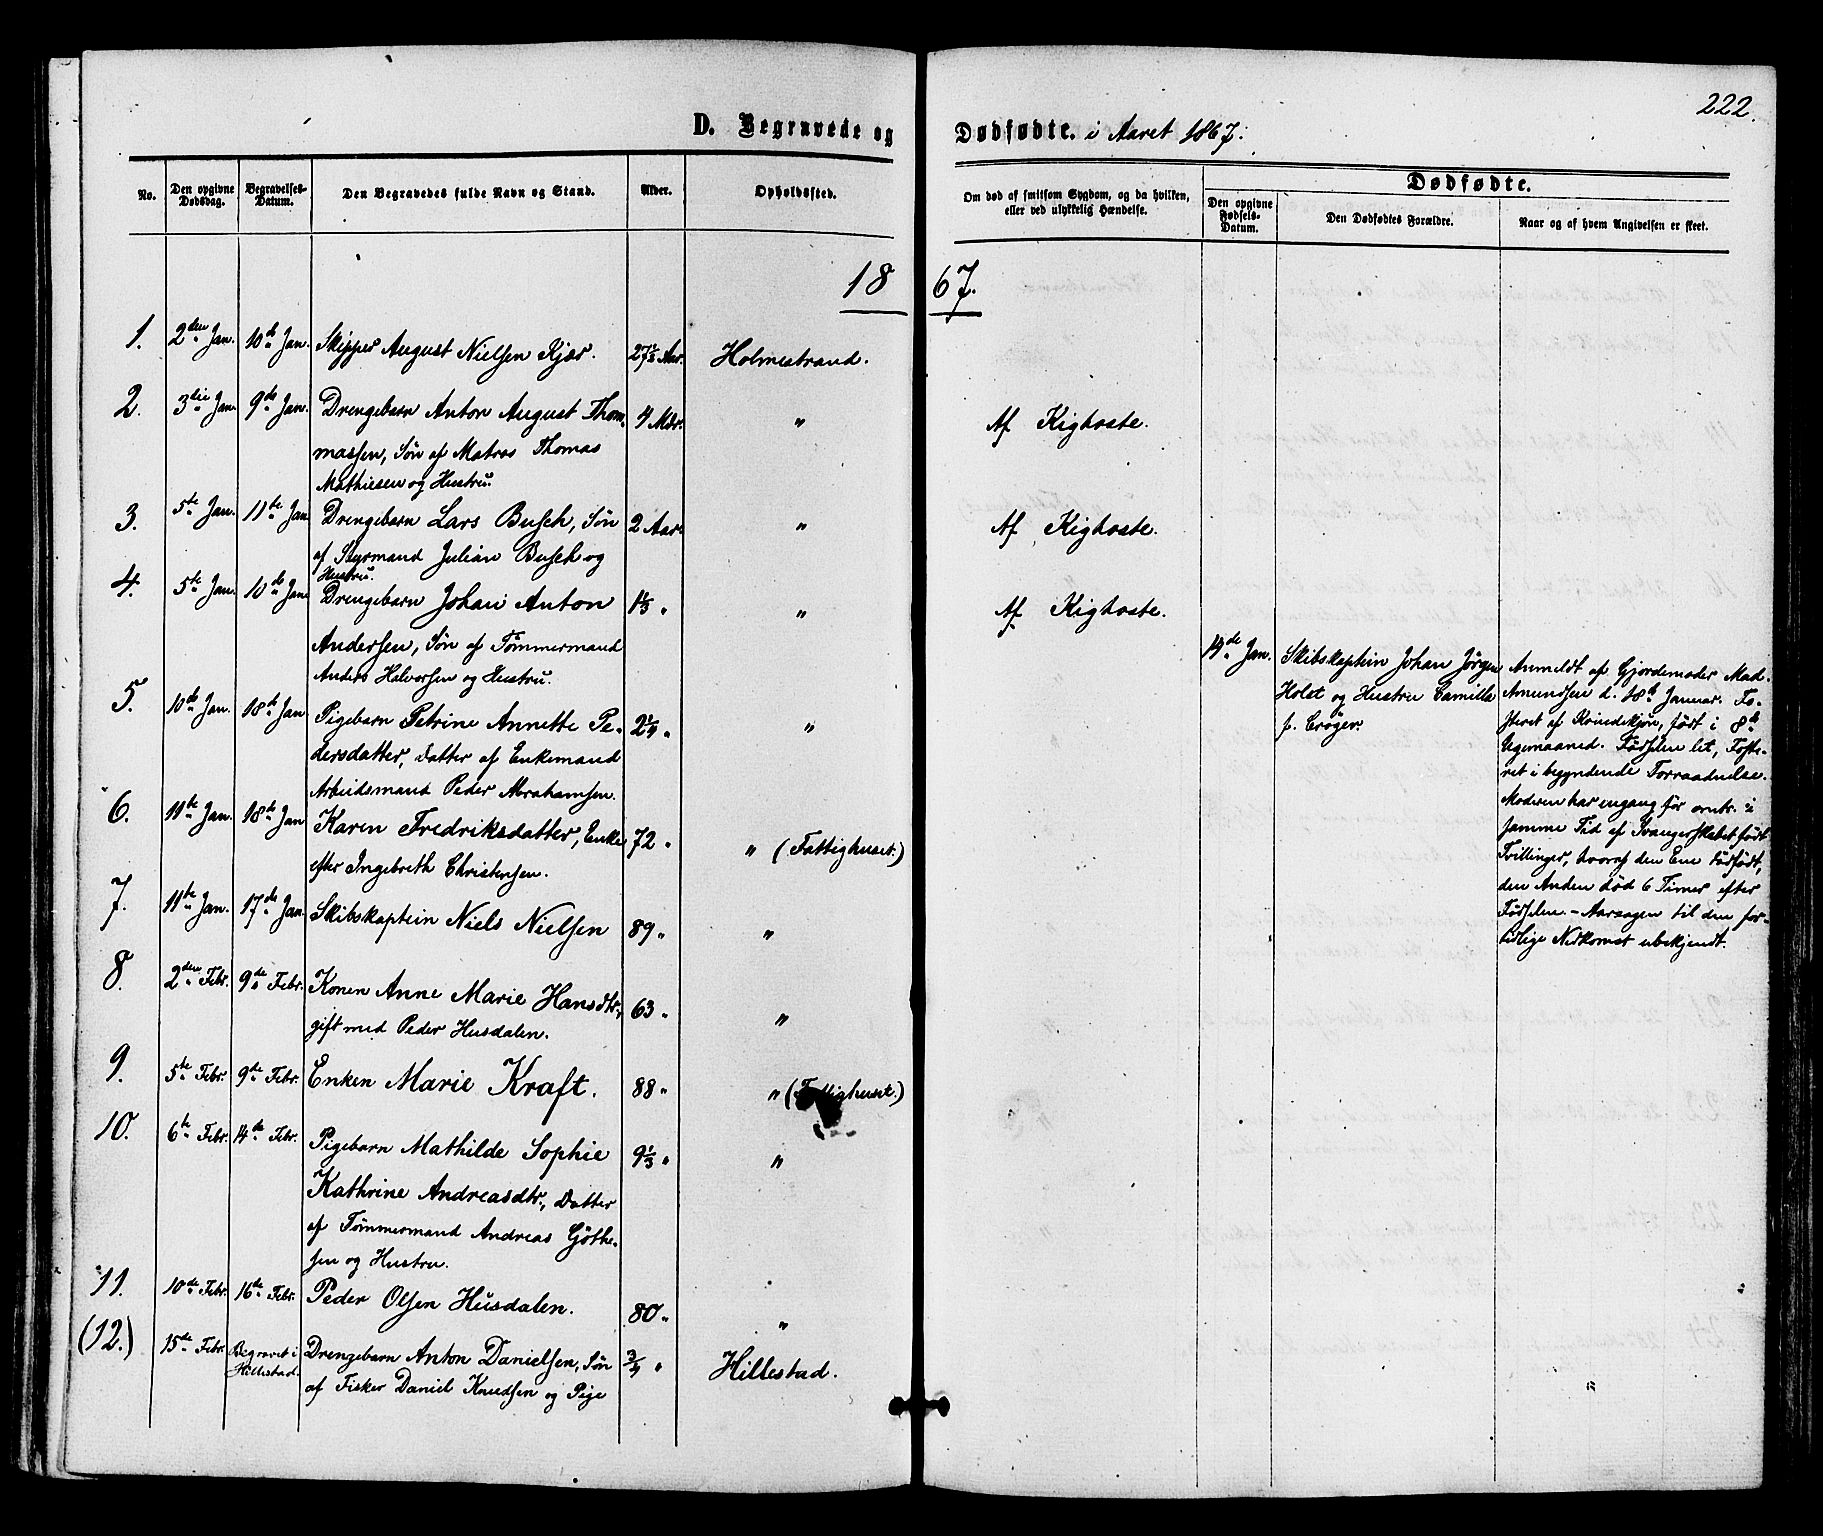 222.
D. Begravede og Dødfødte. i Aaret 1867.
No.
Den opgivne Dødsdag.
Begravelses-Datum.
Den Begravedes fulde Navn og Stand.
Alder.
Opholdssted.
Om død af smitsom Sygdom, og da hvilken,
eller ved ulykkelig Hændelse.
Dødfødte.
Den opgivne Fødsels-Datum.
Den Dødfødtes Forældre.
Naar og af hvem Angivelsen er skeet.
18 67.
1. 2den Jan. 10de Jan. Skipper August Nielsen Kjær. 27½ Aar. Holmestrand.
2. 3die Jan. 9de Jan. Drengebarn Anton August Thom- 4 Mdr. " Af Kighoste.
massen, Søn af Matros Thomas
Mathiesen og Hustru.
3. 5te Jan. 11te Jan. Drengebarn Lars Busch, Søn 2 Aar. " Af Kighoste.
af Styrmand Julian Busch og
Hustru.
4. 5te Jan. 10de Jan. Drengebarn Johan Anton 1⅓ " " Af Kighoste.
Andersen, Søn af Tømmermand
Anders Halvorsen og Hustru.
5. 10de Jan. 18de Jan. Pigebarn Petrine Annette Pe- 2¼ " "
dersdatter, Datter af Enkemand
Arbeidsmand Peder Abrahamsen.
6. 11te Jan. 18de Jan. Karen Fredriksdatter, Enke 72 " " (Fattighuset.)
efter Ingebreth Christensen.
7. 11te Jan. 17de Jan. Skibskaptein Niels Nielsen 89 " "
8. 2den Febr. 9de Febr. Konen Anne Marie Hansdtr., 63 " "
gift med Peder Husdalen.
9. 5te Febr. 9de Febr. Enken Marie Kraft. 88 " " (Fattighuset.)
10. 6te Febr. 14de Febr. Pigebarn Mathilde Sophie 9⅓ " "
Kathrine Andreasdtr., Datter
af Tømmermand Andreas Göthe-
sen og Hustru.
11. 10de Febr. 16de Febr. Peder Olsen Husdalen. 80 " "
(12.) 15de Febr. Begravet i Hillestad. Drengebarn Anton Danielsen, Søn ¾ " Hillestad.
af Fisker Daniel Knudsen og Pige
14de Jan. Skibskaptein Johan Jørgen
Holst og Hustru Camilla
f. Crøger.
Anmeldt af Gjordemoder Mad.
Amundsen d. 18de Januar. Fo-
steret af Kvindekjøn, født i 8de
Ugemaaned. Fødselen let, Foste-
ret i begyndende Forraadnelse.
Moderen har engang før omtr. i
samme Tid af Svangerskabet født
Tvillinger, hvoraf den Ene dødfødt,
den Anden død 6 Timer efter
Fødselen. – Aarsagen til den for-
tidlige Nedkomst ubekjendt.